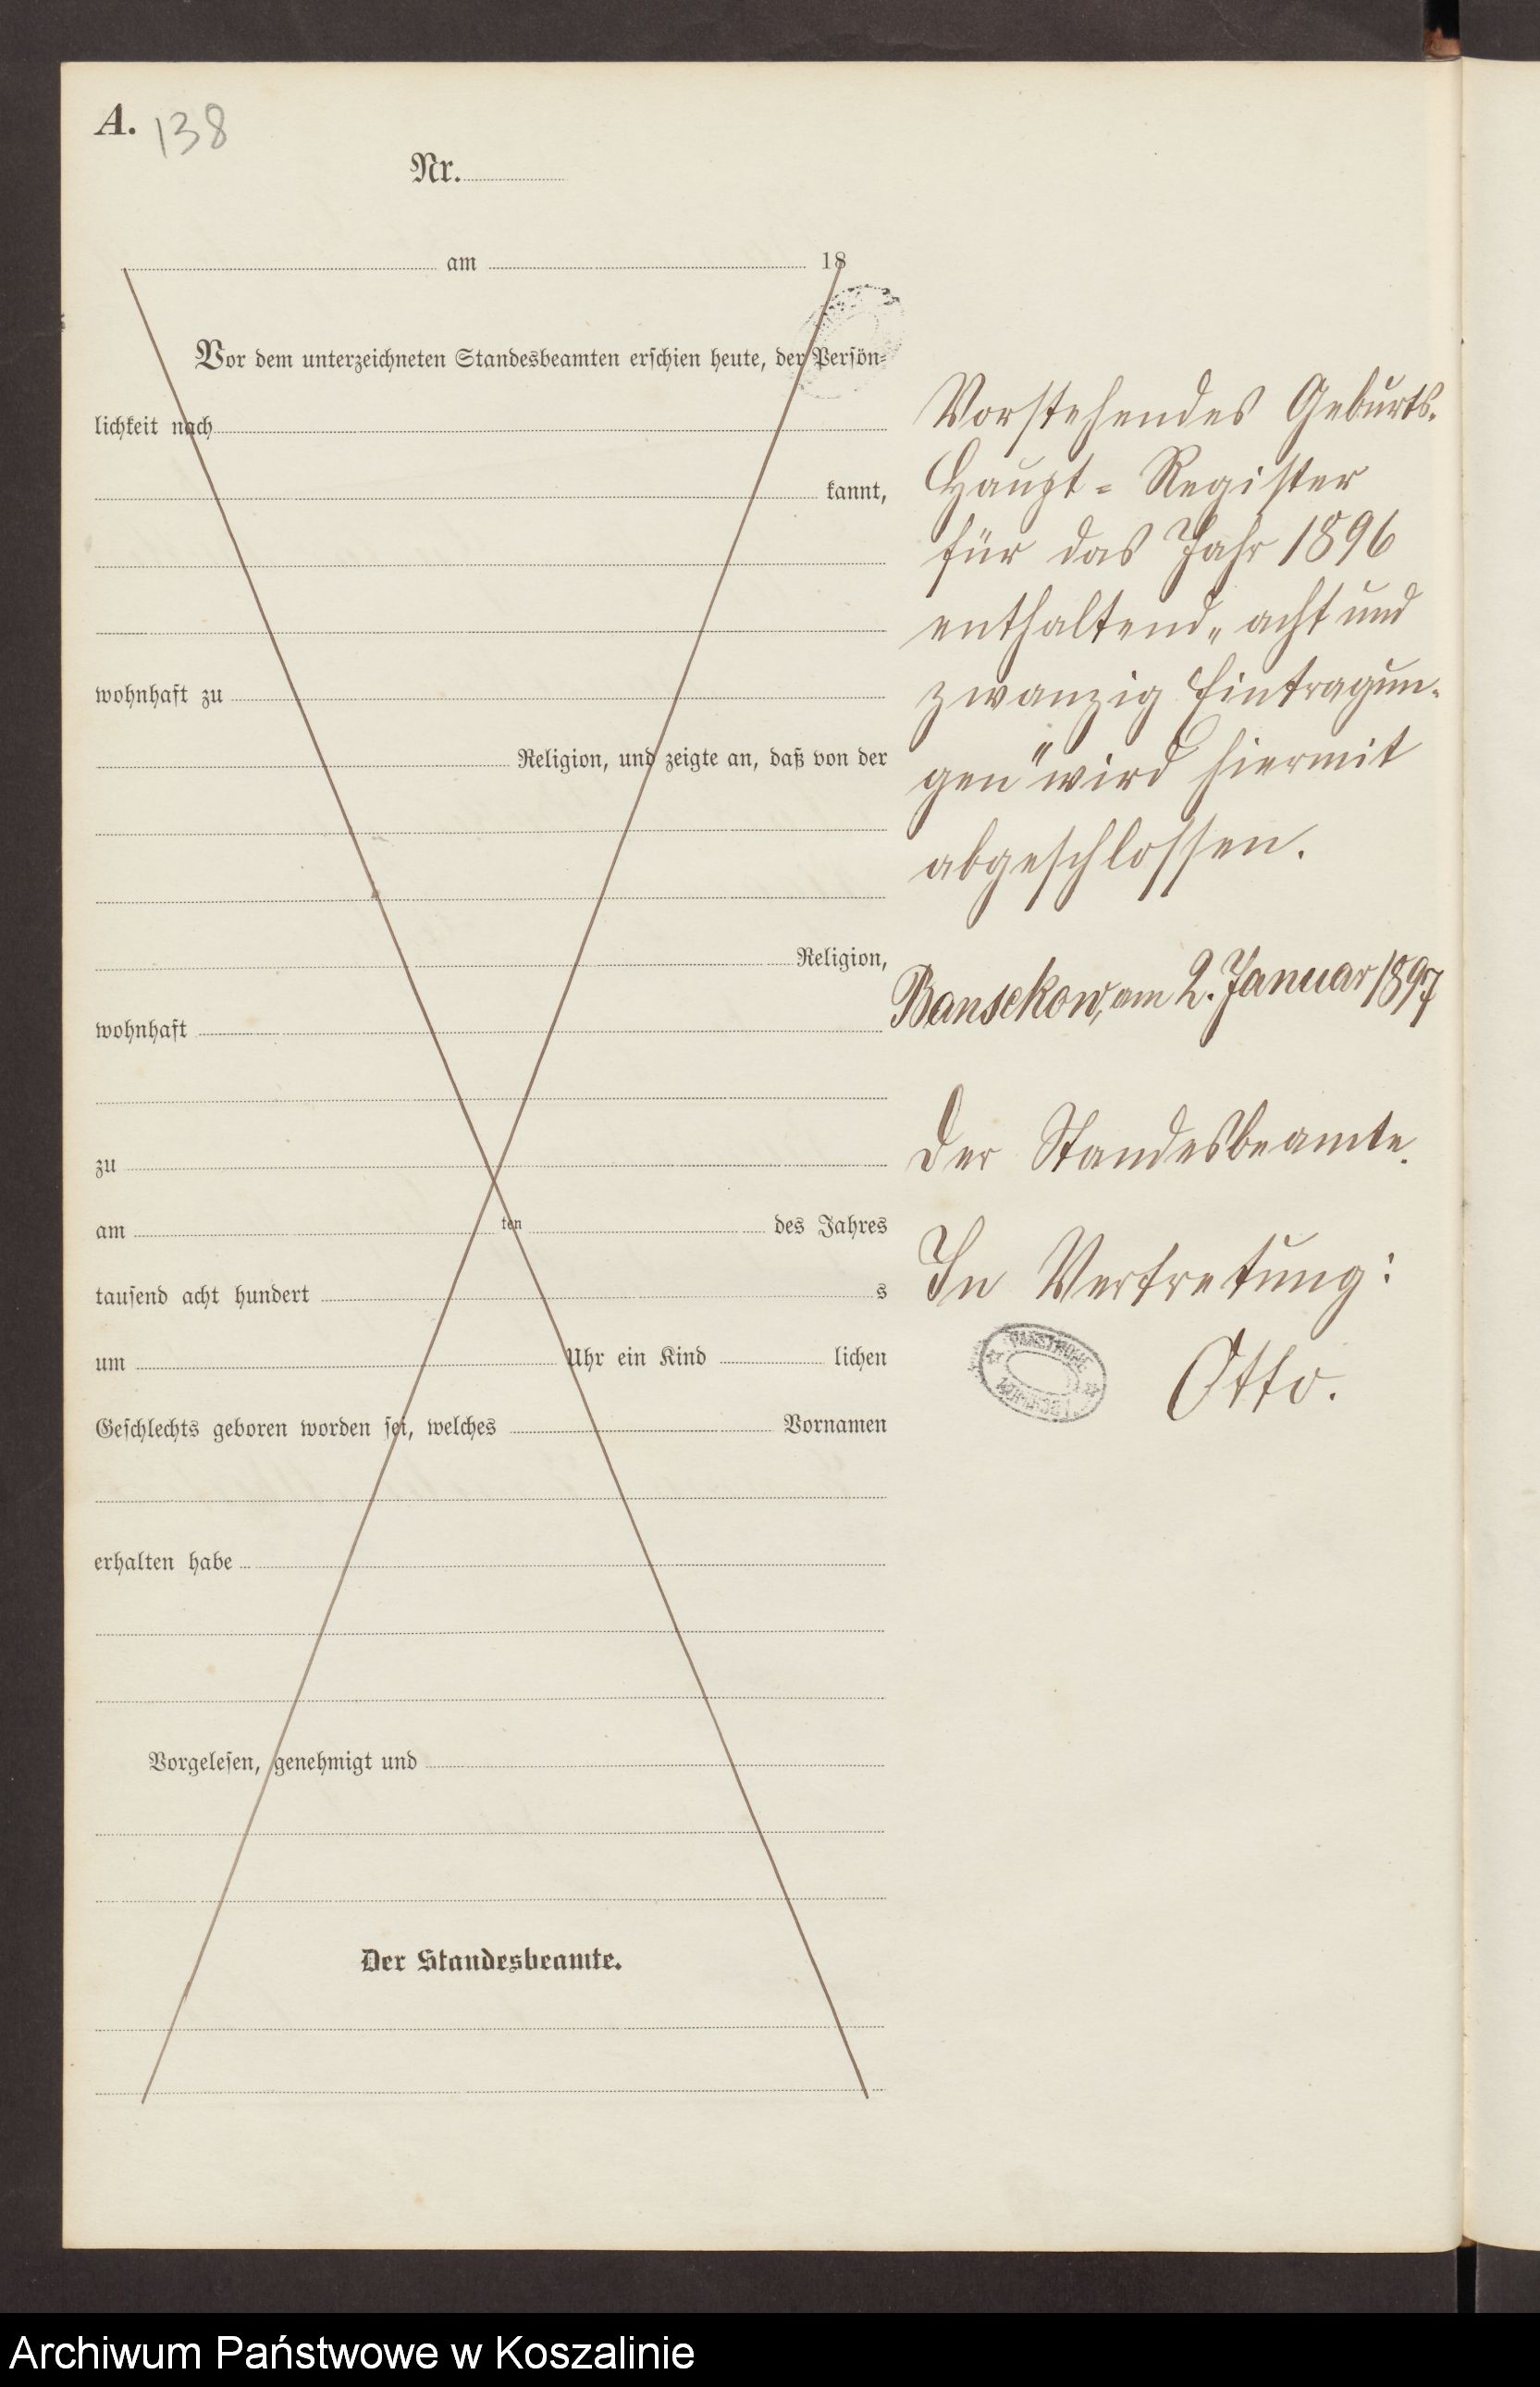 A. 138
Nr.
am 18
Vor dem unterzeichneten Standesbeamten erschien heute, der Persön-
lichkeit nach
kannt,
wohnhaft zu
Religion, und zeigte an, daß von der
Religion,
wohnhaft
zu
am ten des Jahres
tausend acht hundert s
um Uhr ein Kind lichen
Geschlechts geboren worden sei, welches Vornamen
erhalten habe
Vorgelesen, genehmigt und
Der Standesbeamte.
Vorstehendes Geburts-
Haupt-Register
für das Jahr 1896
enthaltend „acht und
zwanzig Eintragun-
gen" wird hiermit
abgeschlossen.
Bansekow, am 2. Januar 1897
Der Standesbeamte.
In Vertretung:
Otto.
Archiwum Państwowe w Koszalinie